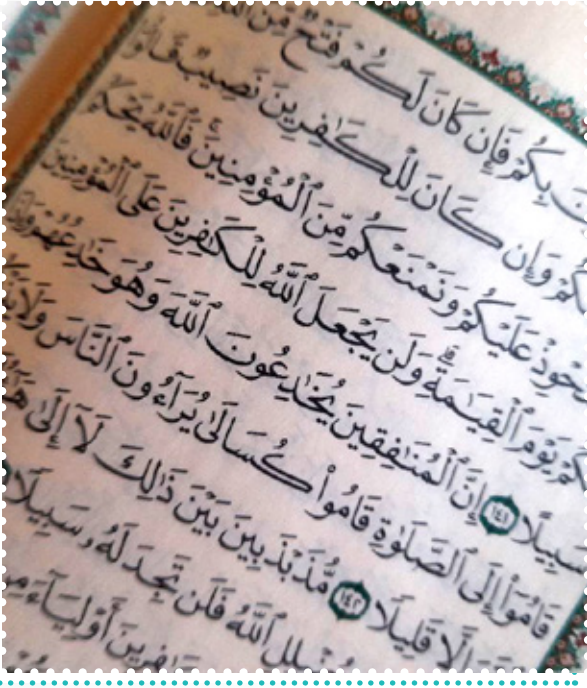 بِكُمْ فَإِن كَانَ لَكُمْ فَتْحٌ مِّنَ
كُمْ وَإِن كَانَ لِلْكَٰفِرِينَ نَصِيبٌ قَالُوٓا۟
عَلَيْكُمْ وَنَمْنَعْكُم مِّنَ ٱلْمُؤْمِنِينَ ۚ فَٱللَّهُ يَحْكُمُ
كُمْ يَوْمَ ٱلْقِيَٰمَةِ ۗ وَلَن يَجْعَلَ ٱللَّهُ لِلْكَٰفِرِينَ عَلَى ٱلْمُؤْمِنِينَ
سَبِيلًا ١٤١ إِنَّ ٱلْمُنَٰفِقِينَ يُخَٰدِعُونَ ٱللَّهَ وَهُوَ خَٰدِعُهُمْ وَإِذَا
قَامُوٓا۟ إِلَى ٱلصَّلَوٰةِ قَامُوا۟ كُسَالَىٰ يُرَآءُونَ ٱلنَّاسَ وَلَا
إِلَّا قَلِيلًا ١٤٢ مُّذَبْذَبِينَ بَيْنَ ذَٰلِكَ لَآ إِلَىٰ
ٱللَّهُ فَلَن تَجِدَ لَهُۥ سَبِيلًا
أَوْلِيَآءَ